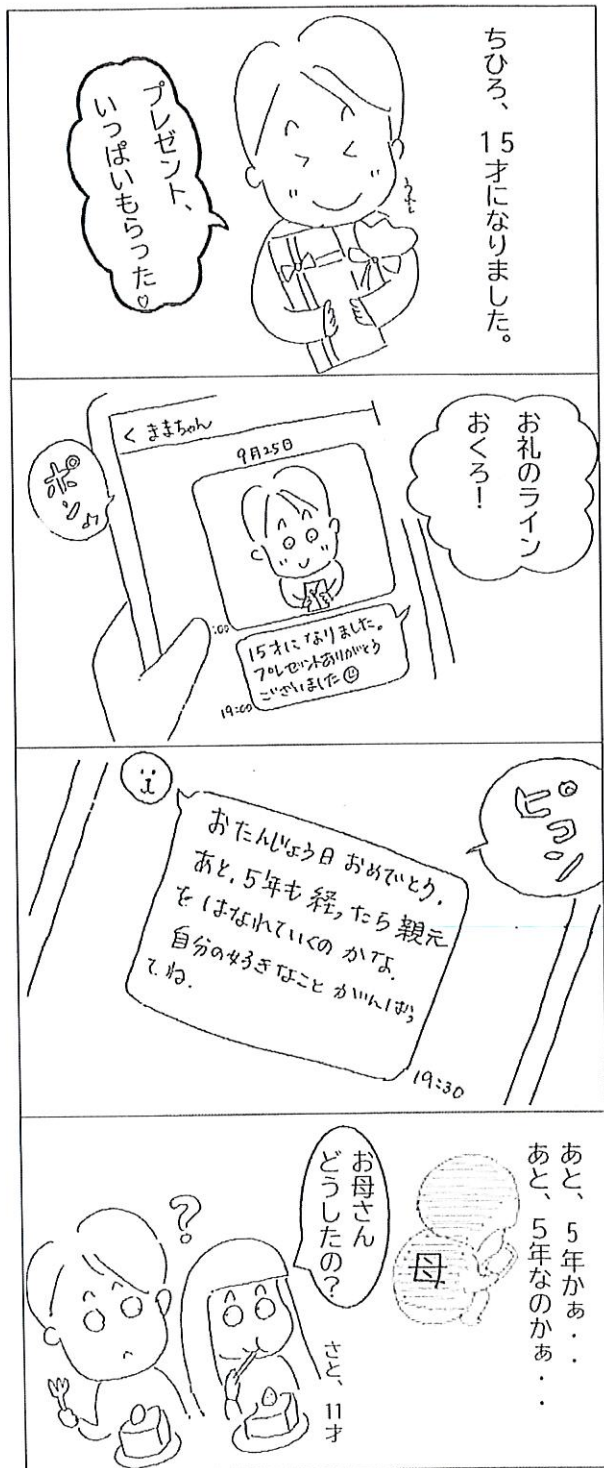 ちひろ、15才になりました。
プレゼント、
いっぱいもらった♡
お礼のライン
おくろ！
< ままちゃん
9月25日
ポン♪
:00
15才になりました。
プレゼントありがとう
ございました☺
19:00
ピコン
おたんじょう日 おめでとう。
あと、5年も経ったら親元
をはなれていくのかな。
自分の好きなことがんばっ
てね。
19:30
あと、5年かぁ・・
あと、5年なのかぁ・・
母
お母さん
どうしたの？
？
さと、11才